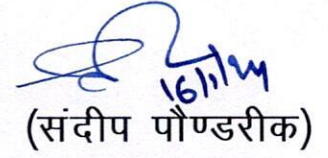 16/1/24
(संदीप पौण्डरीक)